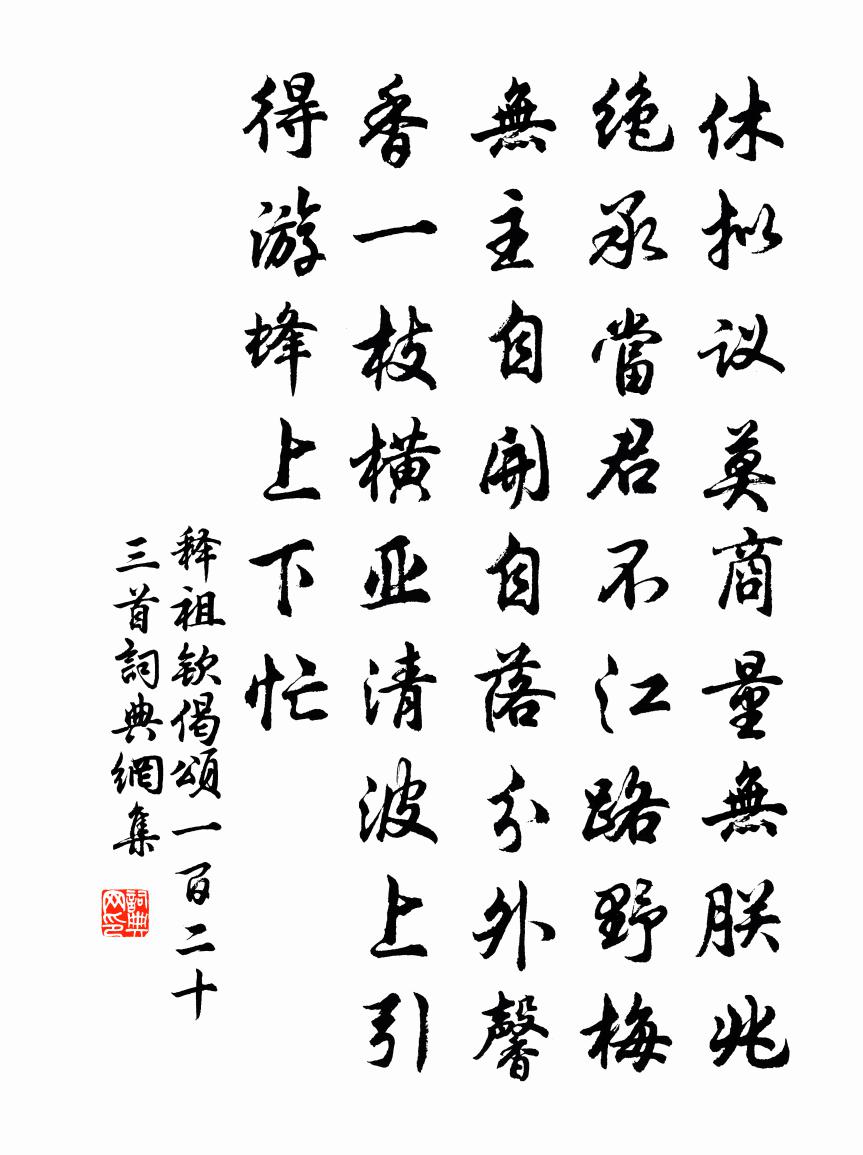 休拟议莫商量無朕兆
绝承當君不江路野梅
無主自開自落分外馨
香一枝横亚清波上引
得游蜂上下忙
释祖钦偈頌一百二十
三首詞典網集
詞典网印